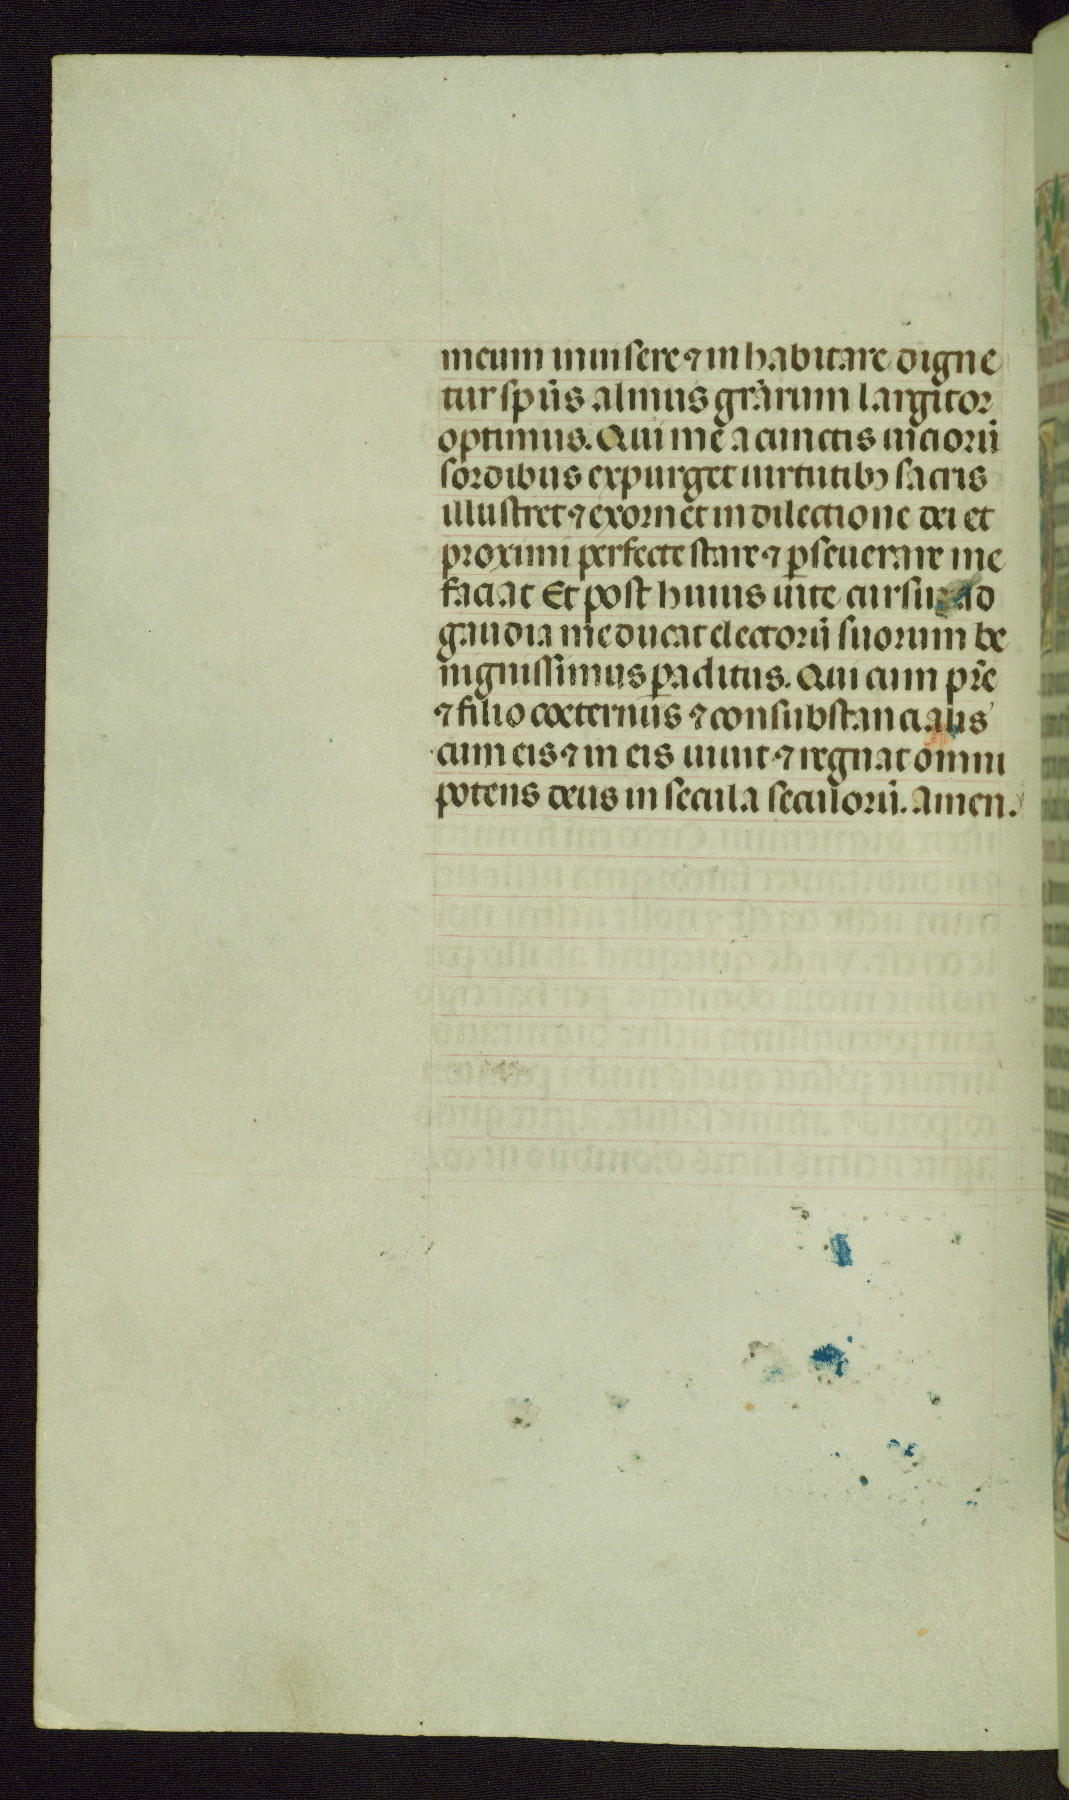 meum inuisere ⁊ inhabitare digne
tur sp̄us almus gr̄arum largitor
optimus. Qui me a cunctis uicioru̅
sordibus expurget uirtutibꝫ sacris
illustret ⁊ exornet in dilectione dei et
proximi perfecte stare ⁊ ꝑseuerare me
faciat Et post huius uite cursu̅ ad
gaudia me ducat electoru̅ suorum be
nignissimus ꝑaclitus. Qui cum pr̄e
⁊ filio coeternus ⁊ consubstancialis
cum eis ⁊ in eis uiuit ⁊ regnat omni
potens deus in secula seculoru̅. Amen.